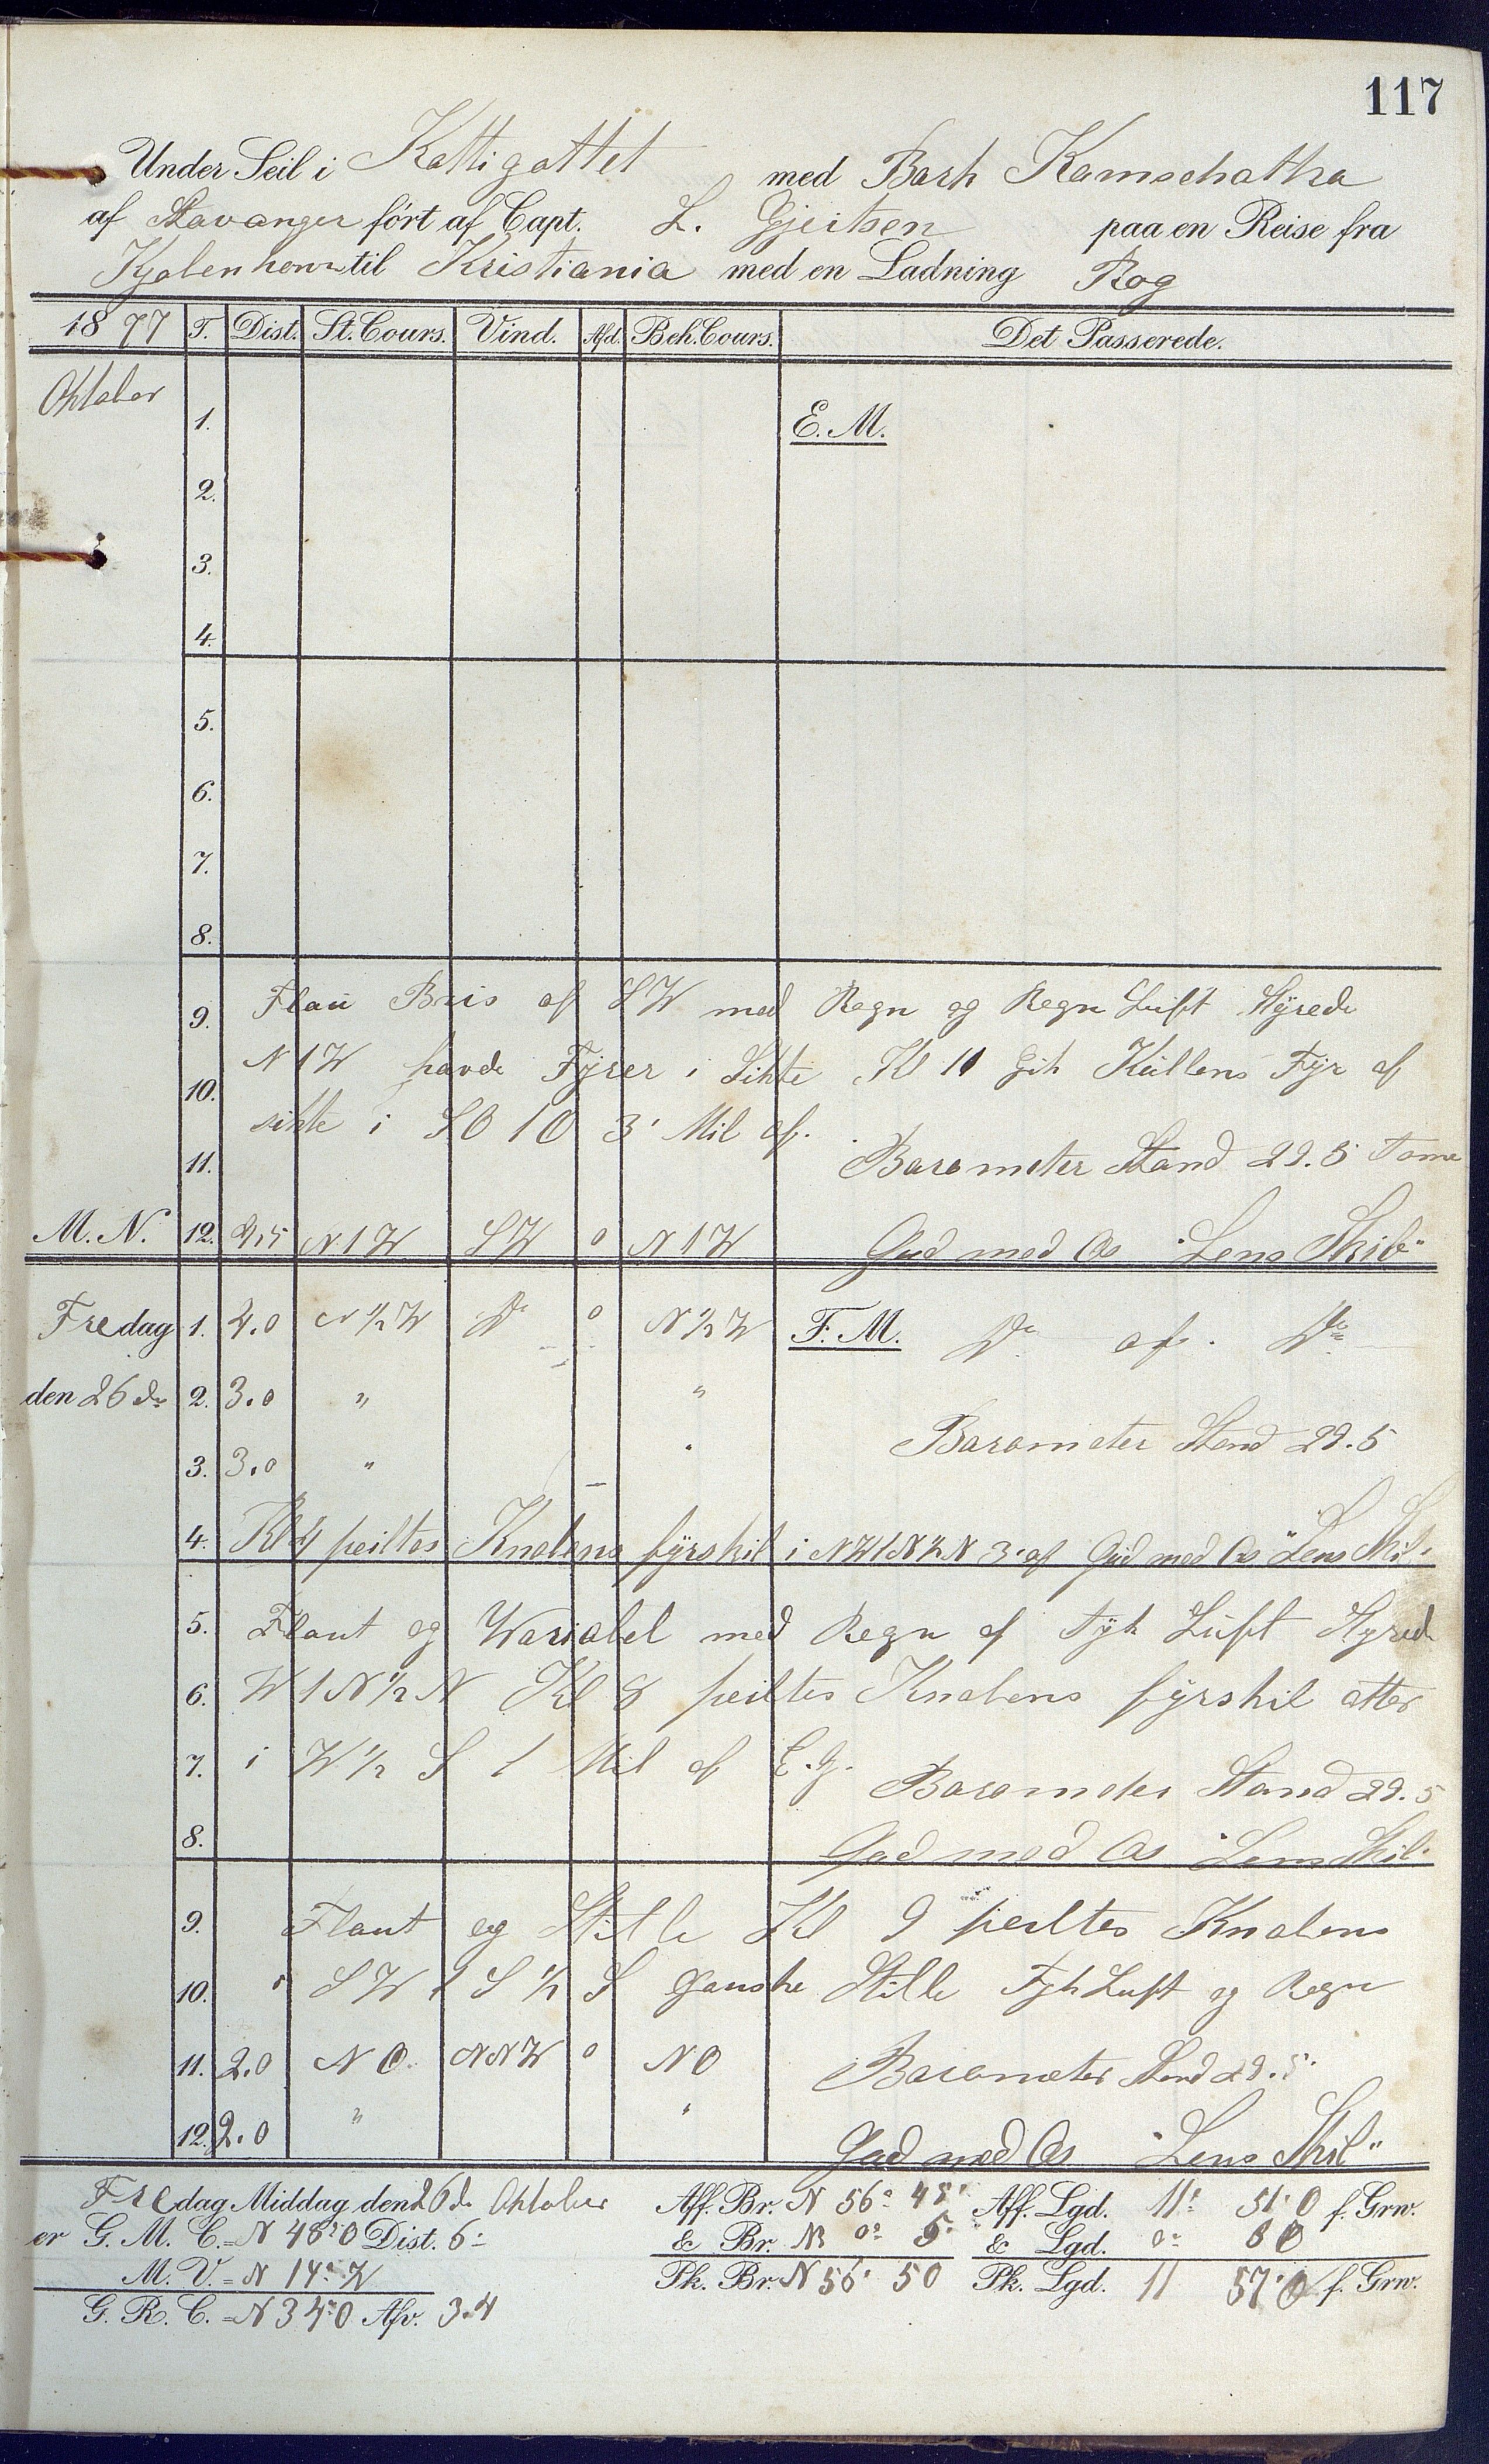 117
Under Seil i Kattigattet med Bark Kamschatka
af Stavanger ført af Capt. L. Gjertsen paa en Reise fra
Kjøbenhavn til Kristiania med en Ladning Rog
1877 T. Dist. St. Cours. Vind. Afd. Beh. Cours. Det Passerede.
Oktober
1. E. M.
2.
3.
4.
5.
6.
7.
8.
9. Flau Bris af SW med Regn og Regn Luft Styrede
10. N 1 W havde Fyrer i Sikte Kl 11 Gik Kullens Fyr af
sikte i SO 1 O 3' Mil af.
11. Barometer Stand 29.5 Tome
M. N. 12. 2,5 N 1 W SW 0 N 1 W Gud med Os "Lens Skib"
Fredag 1. 4.0 N ½ W Do 0 N ½ W F. M. Do af. Do
den 26 de 2. 3.0 " "
Barometer Stand 29.5
3. 3.0 " "
4. Kl 4 peiltes Knobens fyrskib i NW 1 N ½ N 3' af Gud med Os "Lens Skib"
5. Flaut og Wariabel med Regn af Tyk Luft Styrede
6. W 1 N ½ N Kl 8 peiltes Knobens fyrskib atter
7. i W ½ S 1 Mil af E.G. Barometer Stand 29.5
8. Gud med Os "Lens Skib"
9. Flaut og Stille Kl 9 peiltes Knobens
10. i SW 1 S ½ S Ganske Stille Tyk Luft og Regn
11. 2.0 NO NNW 0 NO Barometer Stand 29.5
12. 2.0 " " Gud med Os "Lens Skib"
Fredag Middag den 26 de Oktober Aff. Br. N 56° 45' Aff. Lgd. 11° 51' O f. Grw.
er G. M. C. = N 48° O Dist. 6' & Br. N 0° 5' & Lgd. 0° 6 O
M. V. = N 14° W Pk. Br. N 56° 50 Pk. Lgd. 11 57' O f. Grw.
G. R. C. = N 34° O Afv. 3.4